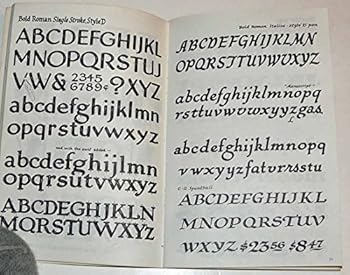 Bold Roman Single Stroke, Style D
ABCDEFGHIJKL
MNOPQRSTUJ
VW& 2345 ?XYZ
6789¢
abcdefghijklmn
opqrstuvwxyz
and with the serif added
abcdefghijlmn
opqrsutuvwxyz
ABCDEFGHKLN
MOPQRSTVWXYZ
Bold Roman Italics - Style D pen
ABCDEFGHIJKLMN
OPQRSTUVWXYZ
abcdefghijklmnopq
rsttuvwvwxyzgas
abcdefghijklmnopqrst
uvwxyzfatvrrstsu
C-2 Speedball
ABCDEFGHIJKL
MNOPQRSTUV
WXYZ $2356 $847